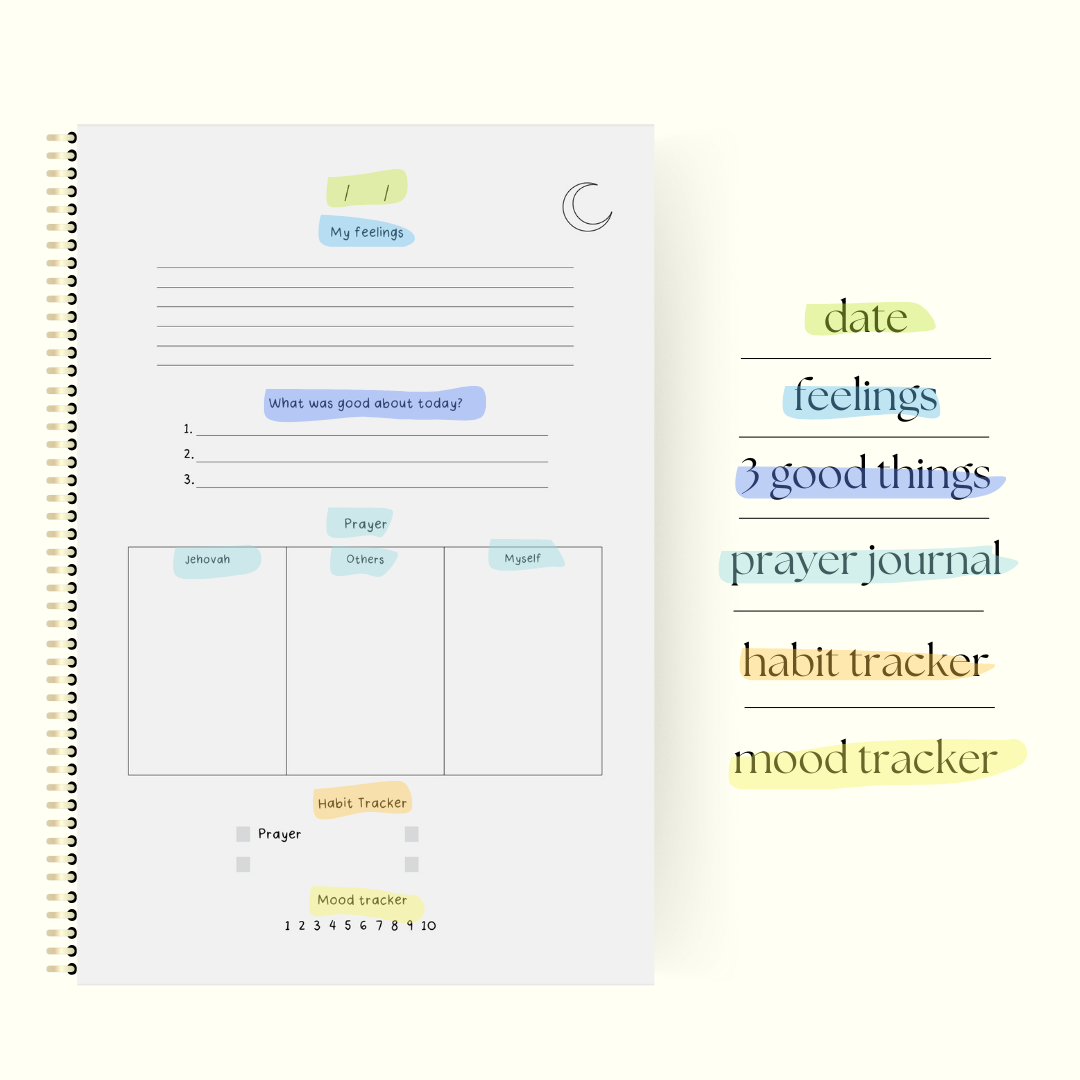 / /
My feelings
What was good about today?
1.
2.
3.
Prayer
Jehovah Others Myself
Habit Tracker
Prayer
Mood tracker
1 2 3 4 5 6 7 8 9 10
date
feelings
3 good things
prayer journal
habit tracker
mood tracker